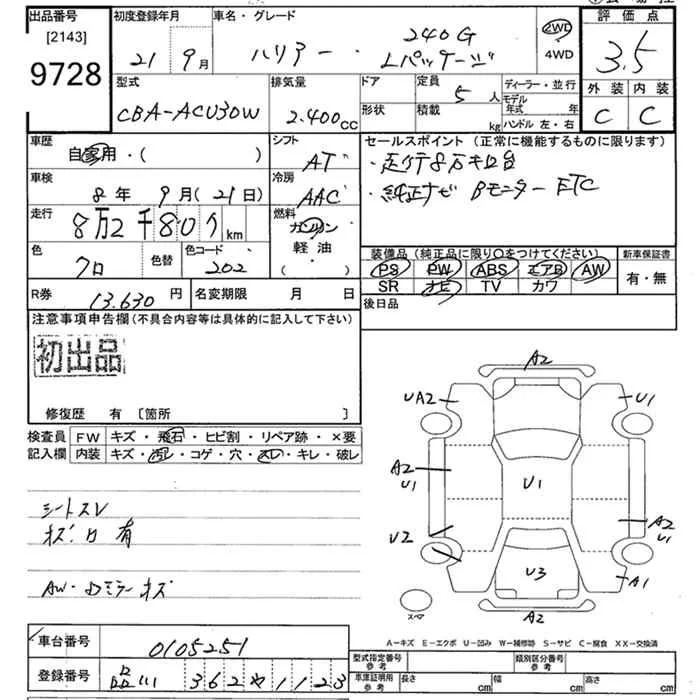 出品番号
[2143]
9728
初度登録年月
21 9月
車名・グレード
ハリアー 240G
Lパッケージ
2WD
4WD
評価点
3.5
外装 内装
C C
型式
CBA-ACU30W
排気量
2.400cc
ドア
形状
定員
5人
積載
kg
ディーラー・並行
モデル年式 年
ハンドル 左・右
車歴
自家用・( )
シフト
AT
セールスポイント (正常に機能するものに限ります)
・走行8万キロ台
・純正ナビ Bモニター ETC
車検
8年 9月(21日)
冷房
AAC
走行
8万2千807km
燃料
ガソリン
軽油
( )
色
クロ
色替
色コード
202
装備品 (純正品に限り〇をつけてください)
PS PW ABS エアB AW
SR ナビ TV カワ
新車保証書
有・無
R券
13.630円
名変期限 月 日
後日品
注意事項申告欄(不具合内容等は具体的に記入して下さい)
初出品
修復歴 有 〔箇所 〕
検査員
記入欄
FW キズ・飛石・ヒビ割・リペア跡・×要
内装 キズ・汚レ・コゲ・穴・スレ・キレ・破レ
シートスレ
キズ 有
AW・Dミラーキズ
A2
UA2
U1
A2
U1
U1
A2
U1
U2
U3
A1
A2
スペア
A-キズ E-エクボ U-凹み W-補修跡 S-サビ C-腐食 XX-交換済
車台番号
0105251
登録番号
品川 362 や 1123
型式指定番号
参考
類別区分番号
参考
車庫証明用
参考
長さ cm
幅 cm
高さ cm